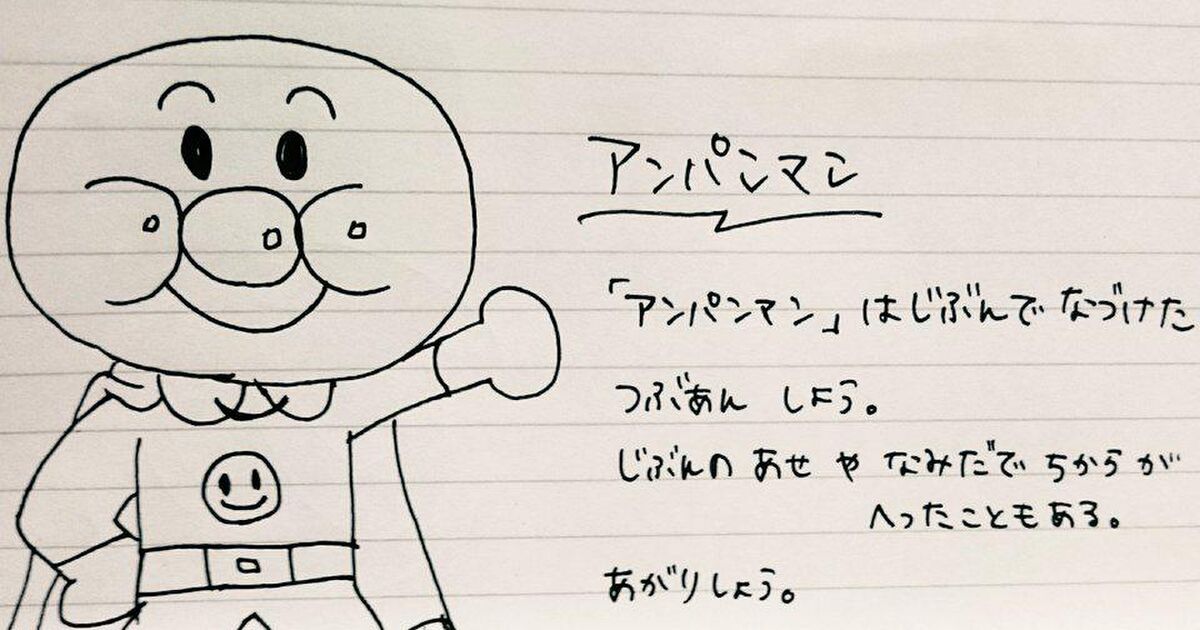 アンパンマン
「アンパンマン」はじぶんでなづけた
つぶあん しよう。
じぶんの あせ や なみだで ちからが
へったこともある。
あがりしょう。